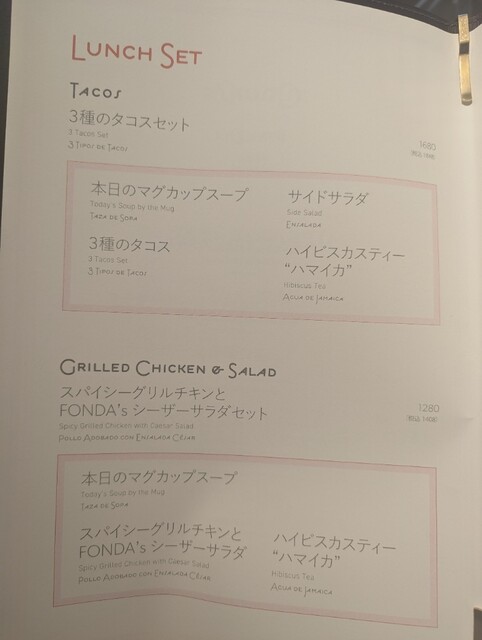 LUNCH SET
TACOS
3種のタコスセット
3 Tacos Set
3 TIPOS DE TACOS
1680
本日のマグカップスープ
Today's Soup by the Mug
TAZA DE SOPA
サイドサラダ
Side Salad
ENSALADA
3種のタコス
3 Tacos Set
3 TIPOS DE TACOS
ハイビスカスティー
“ハマイカ”
Hibiscus Tea
AGUA DE JAMAICA
GRILLED CHICKEN & SALAD
スパイシーグリルチキンと
FONDA's シーザーサラダセット
Spicy Grilled Chicken with Caesar Salad
POLLO ADOBADO CON ENSALADA CÉSAR
1280
本日のマグカップスープ
Today's Soup by the Mug
TAZA DE SOPA
スパイシーグリルチキンと
FONDA's シーザーサラダ
Spicy Grilled Chicken with Caesar Salad
POLLO ADOBADO CON ENSALADA CÉSAR
ハイビスカスティー
“ハマイカ”
Hibiscus Tea
AGUA DE JAMAICA